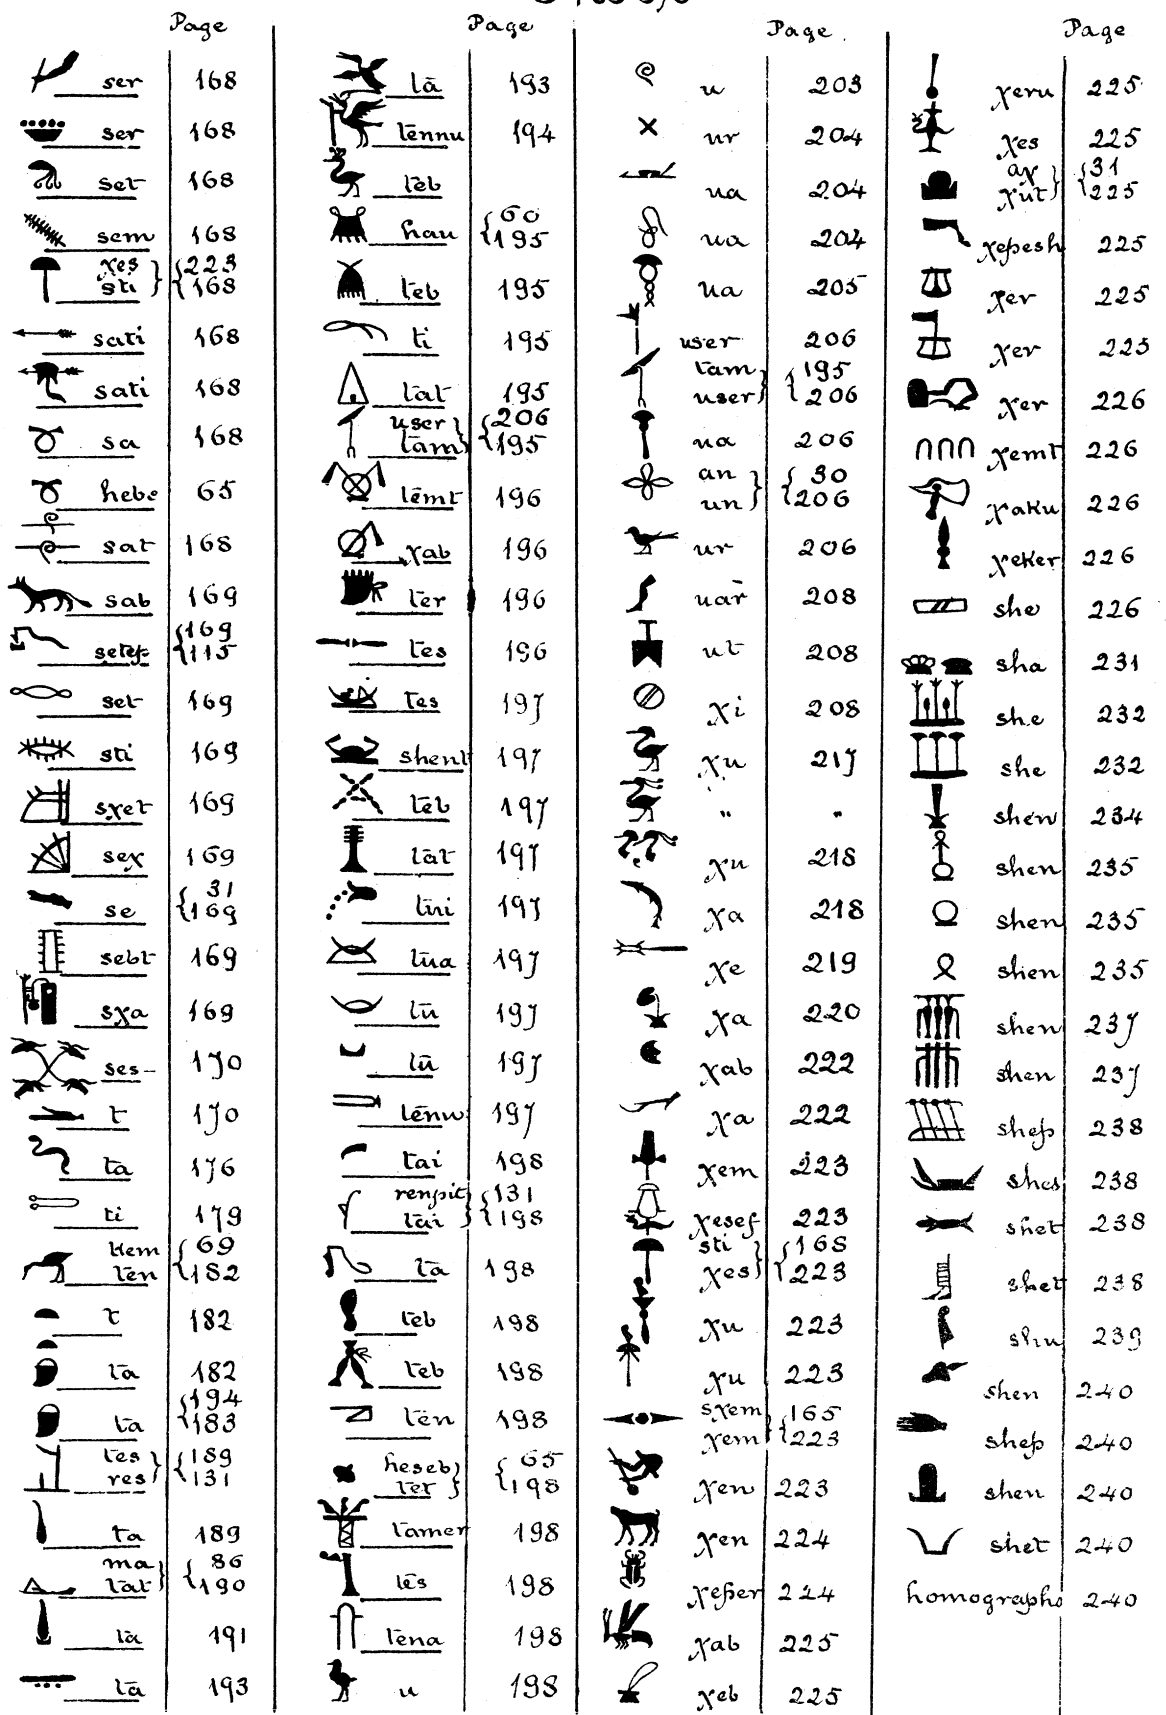 Page
ser 168
ser 168
set 168
sem 168
χes 223
sti 168
sati 168
sati 168
sa 168
hebe 65
sat 168
sab 169
setep 169
115
set 169
sti 169
sχet 169
seχ 169
se 31
169
sebt 169
sχa 169
ses- 170
t 170
ta 176
ti 179
tem 69
ten 182
t 182
ta 182
ta 194
183
tes 189
res 131
ta 189
ma 86
tat 190
ta 191
ta 193
Page
tā 193
tennu 194
teb
hau 60
195
teb 195
ti 195
tat 195
user 206
tam 195
temt 196
χab 196
ter 196
tes 196
tes 197
shent 197
teb 197
tat 197
turi 197
tūa 197
tū 197
tū 197
tenu 197
tai 198
renpit 131
tai 198
ta 198
teb 198
teb 198
ten 198
heseb 65
ter 198
tamer 198
tes 198
tena 198
u 198
Page
u 203
ur 204
ua 204
ua 204
ua 205
user 206
tam 195
user 206
ua 206
an 30
un 206
ur 206
uār 208
ut 208
χi 208
χu 217
" "
χu 218
χa 218
χe 219
χa 220
χab 222
χa 222
χem 223
χesef 223
sti 168
χes 223
χu 223
χu 223
sχem 165
χem 223
χen 223
χen 224
χeper 224
χab 225
χeb 225
Page
χeru 225
χes 225
aχ 31
χut 225
χepesh 225
χer 225
χer 225
χer 226
χemt 226
χaku 226
χeker 226
she 226
sha 231
she 232
she 232
shen 234
shen 235
shen 235
shen 235
shen 237
shen 237
shep 238
shes 238
shet 238
shet 238
shu 239
shen 240
shep 240
shen 240
shet 240
homographs 240